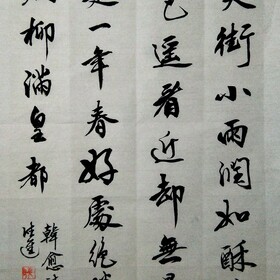 街小雨润如酥
遥看近却無
一年春好處绝
柳满皇都
韓愈